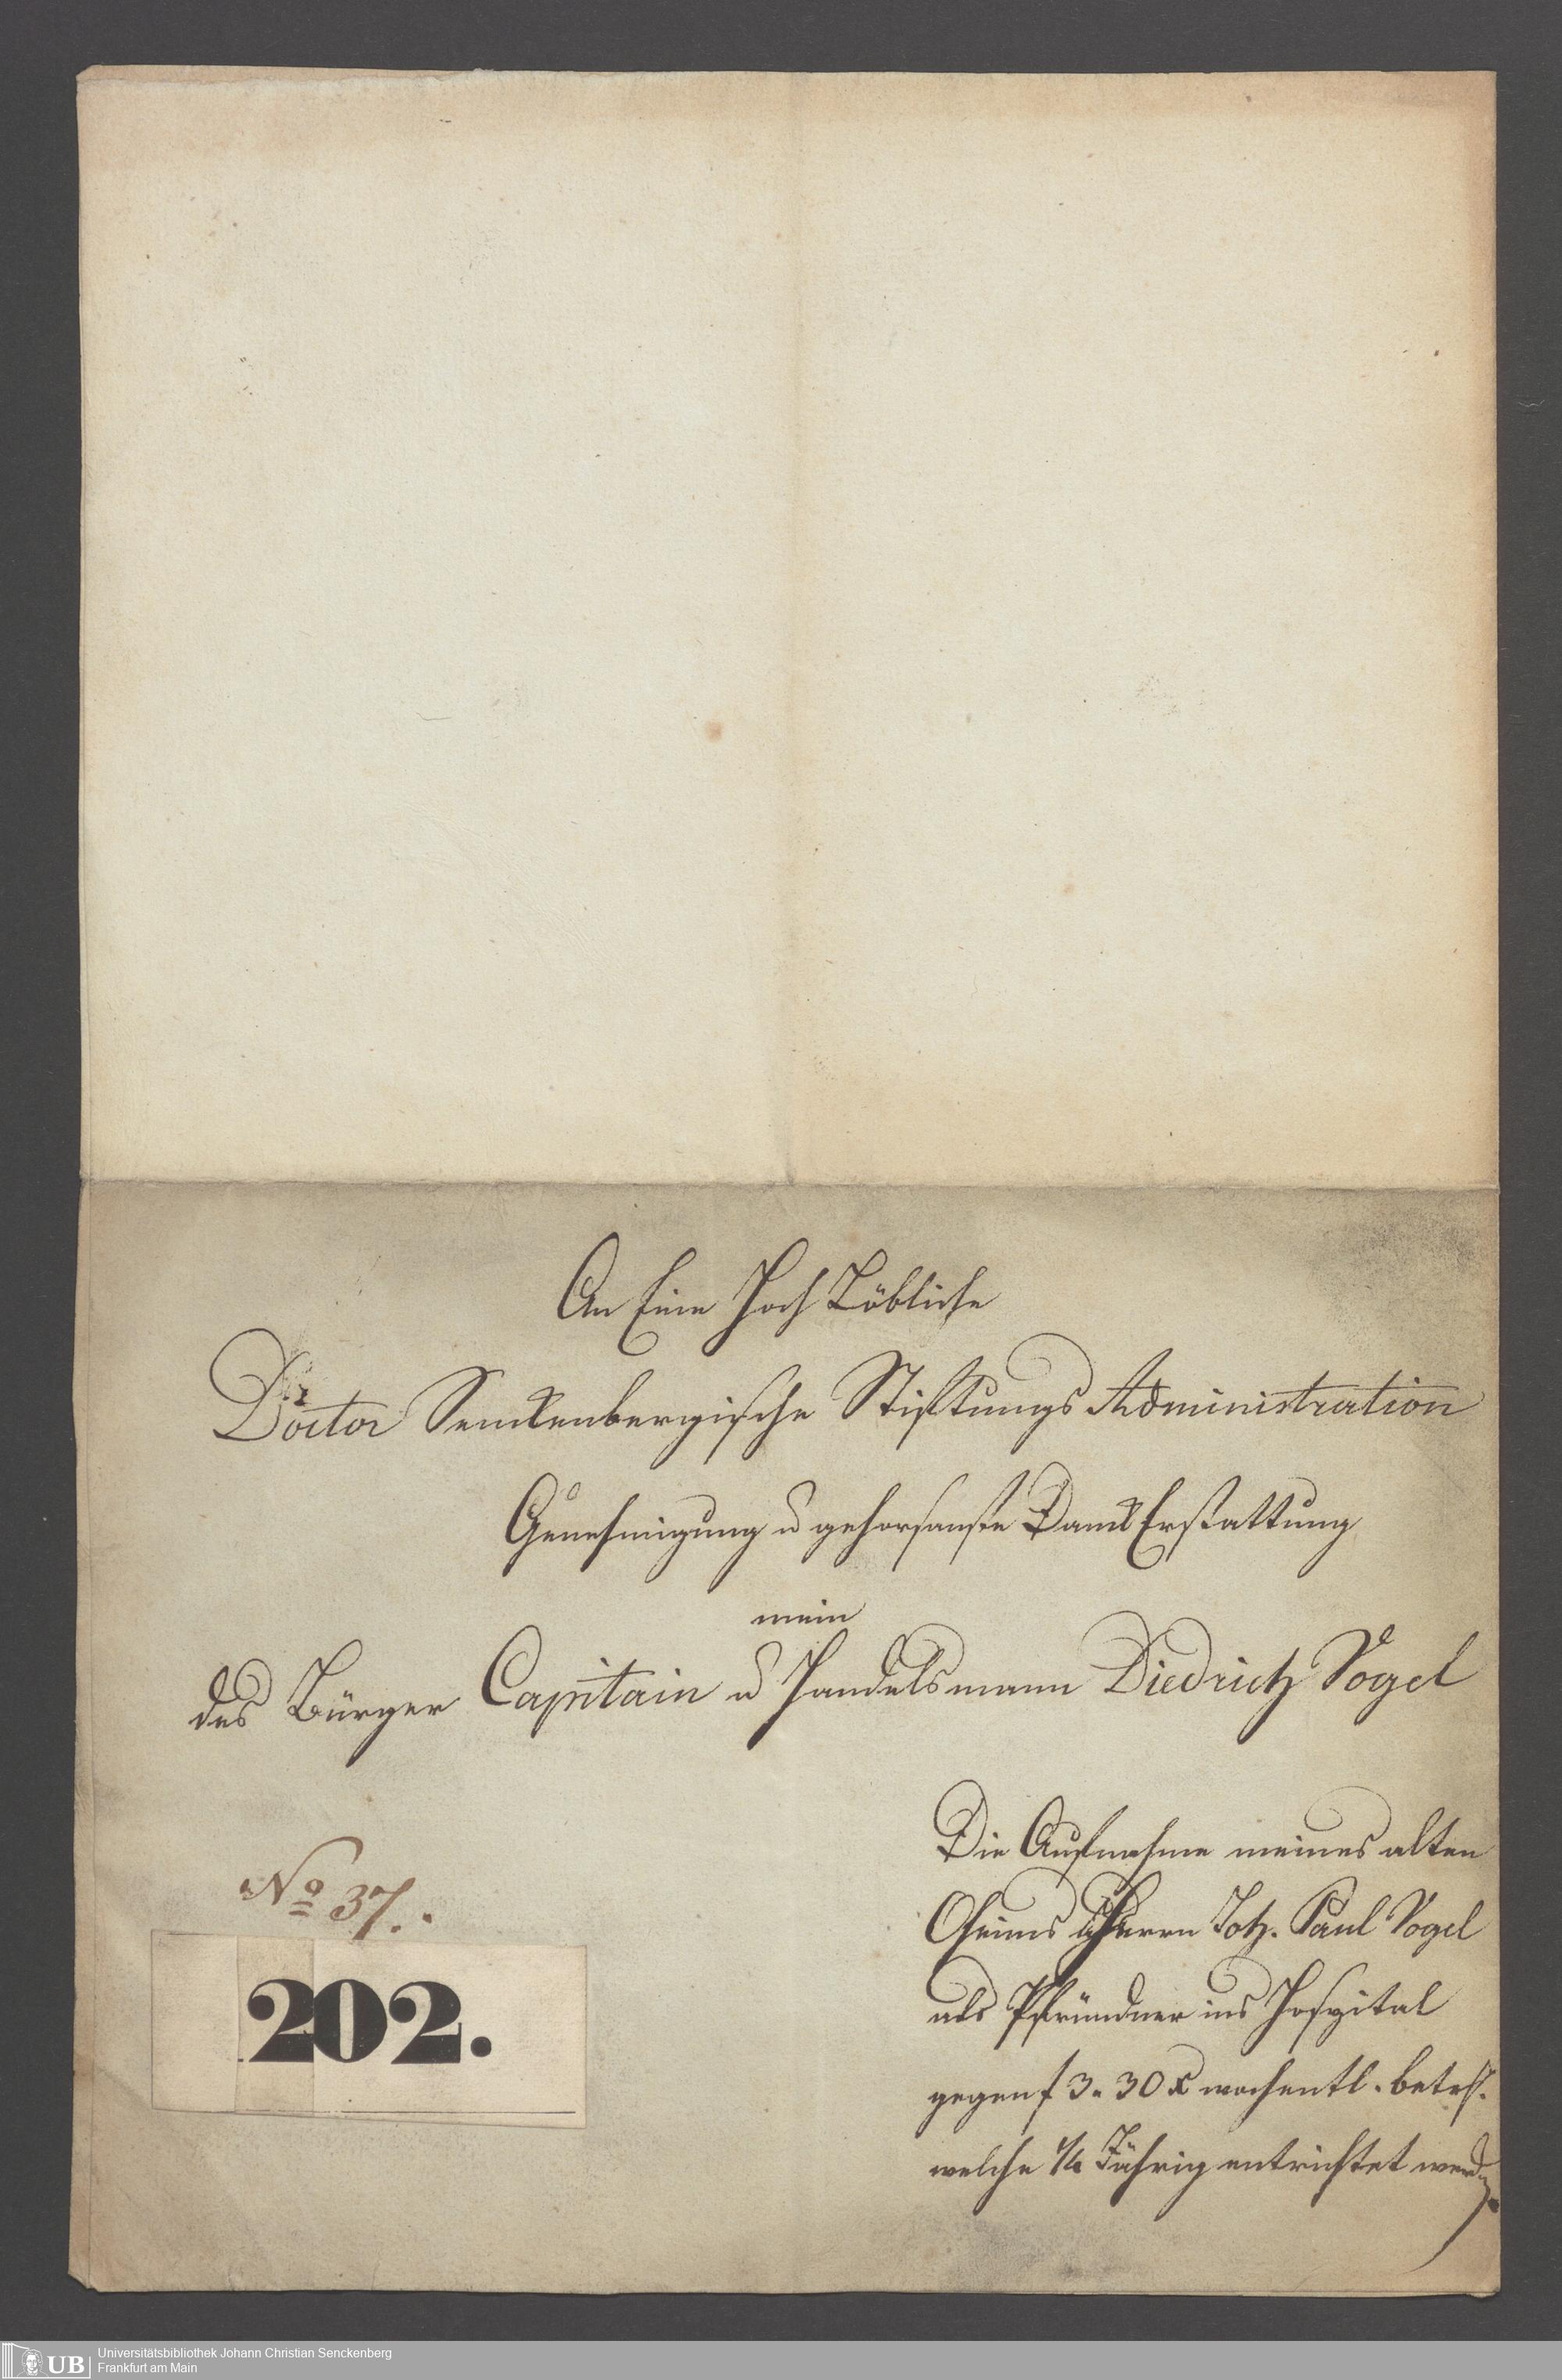 An Eine Hoch Löbliche
Doctor Senckenbergische Stiftungs Administration
Genehmigung u gehorsamste Dank Erstattung
mein
des Bürger Capitain u Handelsmann Diedrich Vogel
Die Aufnahme meines alten
Oheims Herrn Joh. Paul Vogel
als Pfründner ins Hospital
gegen f 3. 30 x wochentl. betrf.
welche 1/4 Jährig entrichtet werd.
No 37.
202.
UB
Universitätsbibliothek Johann Christian Senckenberg
Frankfurt am Main